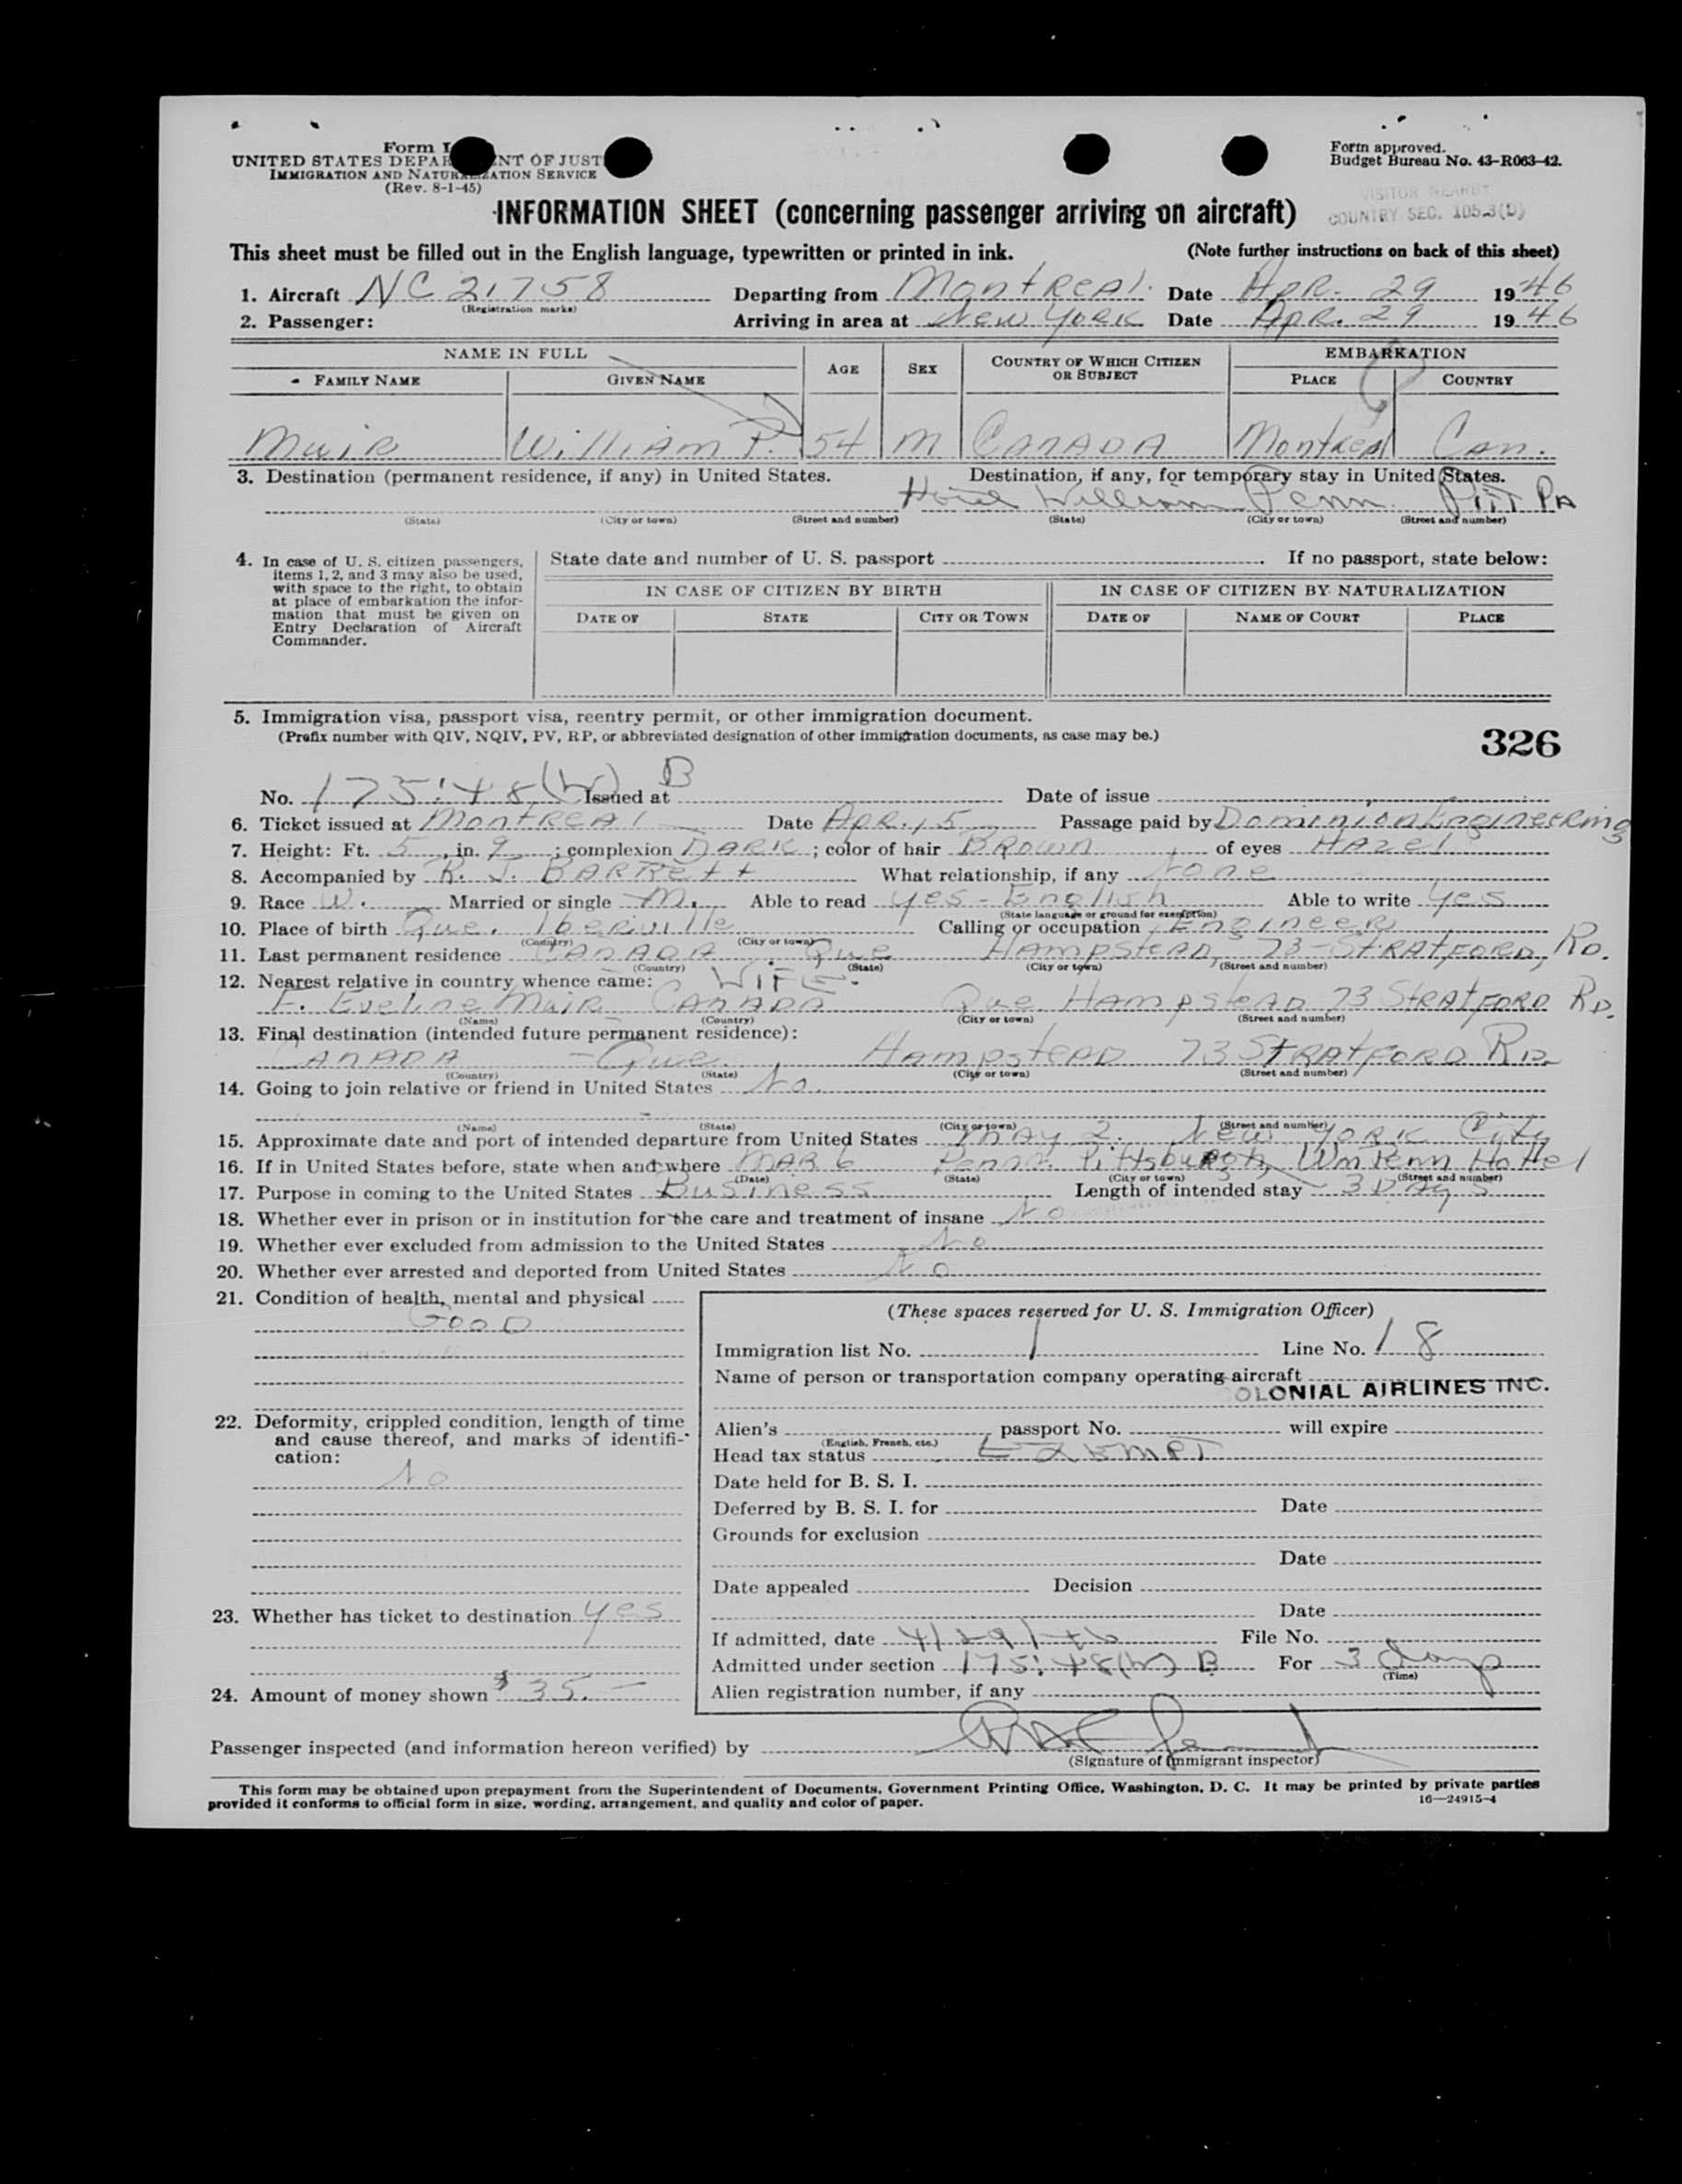 Form I
UNITED STATES DEPAR NT OF JUST
IMMIGRATION AND NATUR ZATION SERVICE
(Rev. 8-1-45)
Form approved.
Budget Bureau No. 43-R063-42.
VISITOR NEARBY
COUNTRY SEC. 105.3(D)
INFORMATION SHEET (concerning passenger arriving on aircraft)
This sheet must be filled out in the English language, typewritten or printed in ink. (Note further instructions on back of this sheet)
1. Aircraft NC 21758 Departing from Montreal. Date Apr. 29 1946
(Registration marks)
2. Passenger: Arriving in area at New York Date Apr. 29 1946
NAME IN FULL AGE SEX COUNTRY OF WHICH CITIZEN OR SUBJECT EMBARKATION
FAMILY NAME GIVEN NAME PLACE COUNTRY
Muir William P. 54 M CANADA Montreal Can.
3. Destination (permanent residence, if any) in United States. Destination, if any, for temporary stay in United States.
Hotel William Penn. Pitt Pa
(State) (City or town) (Street and number) (State) (City or town) (Street and number)
4. In case of U. S. citizen passengers,
items 1, 2, and 3 may also be used,
with space to the right, to obtain
at place of embarkation the infor-
mation that must be given on
Entry Declaration of Aircraft
Commander.
State date and number of U. S. passport . If no passport, state below:
IN CASE OF CITIZEN BY BIRTH IN CASE OF CITIZEN BY NATURALIZATION
DATE OF STATE CITY OR TOWN DATE OF NAME OF COURT PLACE
5. Immigration visa, passport visa, reentry permit, or other immigration document.
(Prefix number with QIV, NQIV, PV, RP, or abbreviated designation of other immigration documents, as case may be.)
326
No. 175:48(b) B Issued at Date of issue
6. Ticket issued at Montreal Date Apr. 15 Passage paid by Dominion Engineering
7. Height: Ft. 5, in. 9; complexion DARK; color of hair BROWN of eyes HAZEL
8. Accompanied by R. J. BARRETT What relationship, if any None
9. Race W. Married or single M. Able to read Yes - English Able to write Yes
(State language or ground for exemption)
10. Place of birth Que. Iberville Calling or occupation Engineer
(Country) (City or town)
11. Last permanent residence CANADA Que HAMPSTEAD, 73-STRATFORD, RD.
(Country) (State) (City or town) (Street and number)
12. Nearest relative in country whence came: WIFE.
F. Eveline Muir CANADA Que HAMPSTEAD 73 STRATFORD RD.
(Name) (Country) (City or town) (Street and number)
13. Final destination (intended future permanent residence):
CANADA - Que. HAMPSTEAD 73 STRATFORD RD.
(Country) (State) (City or town) (Street and number)
14. Going to join relative or friend in United States No.
(Name) (State) (City or town) (Street and number)
15. Approximate date and port of intended departure from United States MAY 2. New York City
16. If in United States before, state when and where MAR 6 Penn. Pittsburgh, Wm Penn Hotel
(Date) (State) (City or town) (Street and number)
17. Purpose in coming to the United States Business Length of intended stay 3 Days
18. Whether ever in prison or in institution for the care and treatment of insane No
19. Whether ever excluded from admission to the United States No
20. Whether ever arrested and deported from United States No
21. Condition of health, mental and physical
GOOD
22. Deformity, crippled condition, length of time
and cause thereof, and marks of identifi-
cation:
No
23. Whether has ticket to destination Yes
24. Amount of money shown $35.—
(These spaces reserved for U. S. Immigration Officer)
Immigration list No. 1 Line No. 18
Name of person or transportation company operating aircraft
OLONIAL AIRLINES INC.
Alien's passport No. will expire
(English, French, etc.)
Head tax status EXEMPT
Date held for B. S. I.
Deferred by B. S. I. for Date
Grounds for exclusion
Date
Date appealed Decision
Date
If admitted, date 4/29/46 File No.
Admitted under section 175:48(b) B For 3 days
(Time)
Alien registration number, if any
Passenger inspected (and information hereon verified) by
(Signature of immigrant inspector)
This form may be obtained upon prepayment from the Superintendent of Documents, Government Printing Office, Washington, D. C. It may be printed by private parties
provided it conforms to official form in size, wording, arrangement, and quality and color of paper. 16—24915-4